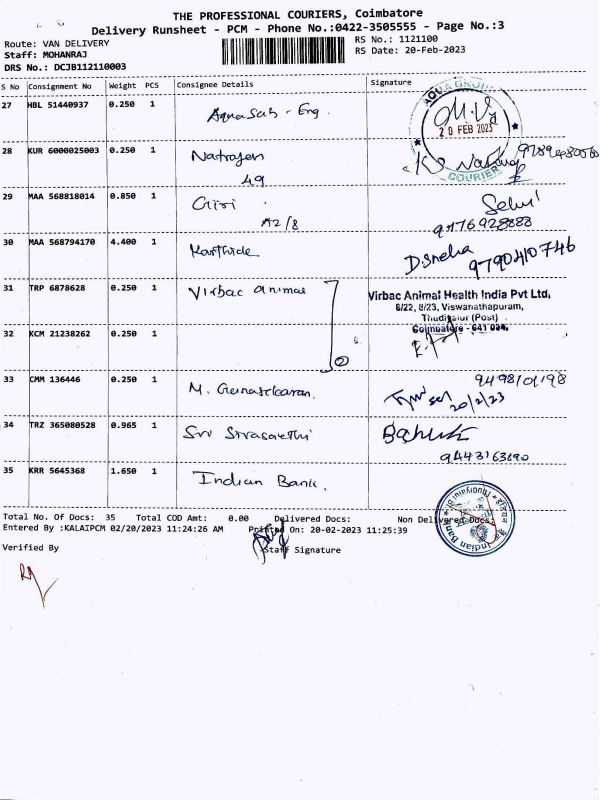 THE PROFESSIONAL COURIERS, Coimbatore
Delivery Runsheet - PCM - Phone No.:0422-3505555 - Page No.:3
Route: VAN DELIVERY
RS No.: 1121100
Staff: MOHANRAJ
RS Date: 20-Feb-2023
DRS No.: DCJB112110003
S No Consignment No Weight PCS Consignee Details Signature
27 HBL 51440937 0.250 1
AQUA GROUP
20 FEB 2023
COURIER
28 KUR 6000025003 0.250 1 Natrajen
49
29 MAA 568818014 0.850 1 Giri Selvi
A2/8 9176928888
30 MAA 568794170 4.400 1 Karthick D.Sneha
9790410746
31 TRP 6878628 0.250 1 Virbac animal
Virbac Animal Health India Pvt Ltd,
6/22, 8/23, Viswanathapuram,
Thudiyalur (Post)
Coimbatore - 641 034.
32 KCM 21238262 0.250 1
33 CMM 136446 0.250 1 M. Gunasekaran.
20/2/23
34 TRZ 365080528 0.965 1 Sri
35 KRR 5645368 1.650 1 Indian Bank.
Indian Bank
Total No. Of Docs: 35 Total COD Amt: 0.00 Delivered Docs: Non Delivered Docs:
Entered By :KALAIPCM 02/20/2023 11:24:26 AM Printed On: 20-02-2023 11:25:39
Staff Signature
Verified By